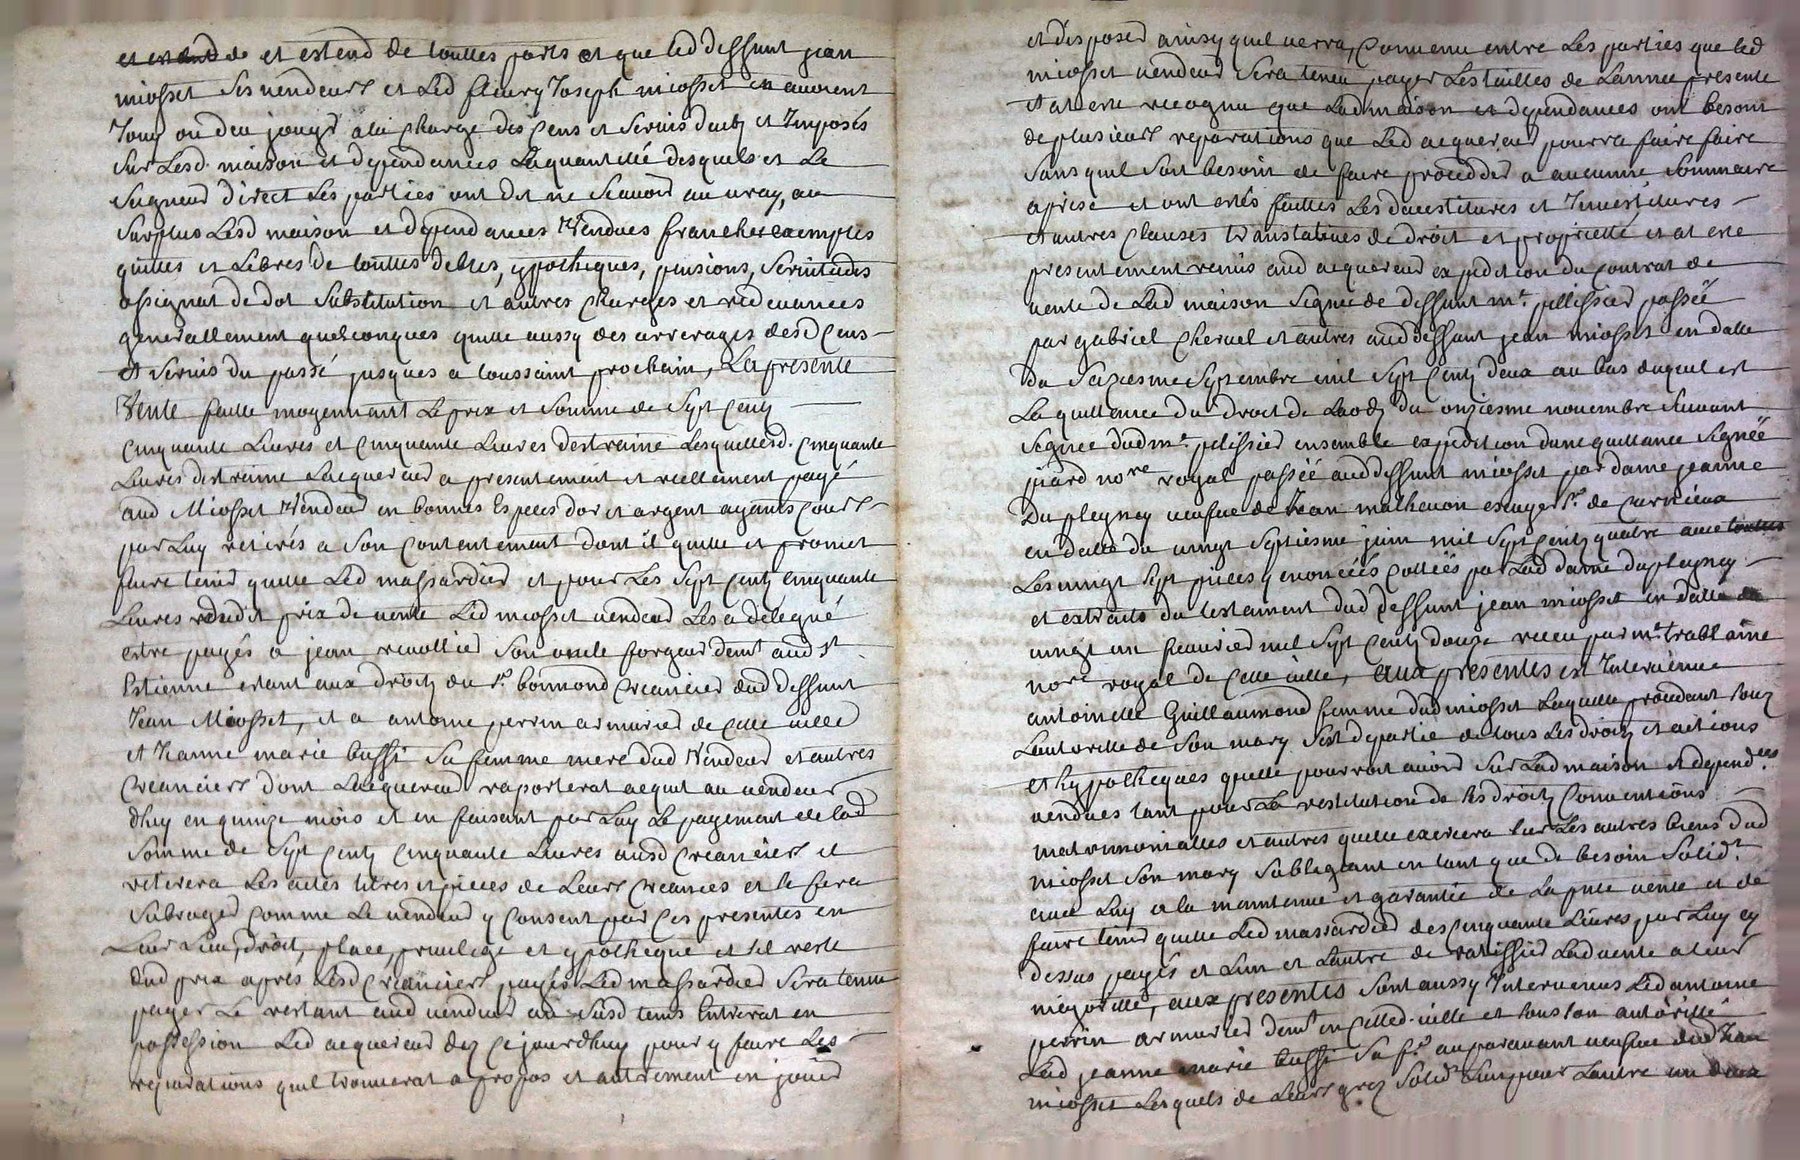 de et estend de touttes parts et que led deffunt jean
miosset ses vendeurs et Led fleury Joseph miosset en auoient
Jouy ou deu jouyr a la charge des Cens et Seruis deubz et Imposés
Sur Lesd. maison et dependances La quantitée desquels et Le
Seigneur direct Les parties ont dit ne Scauoir au uray, au
Surplus Lesd maison et dependances Vendues franches exemptes
quittes et Libres de touttes debtes, ypotheques, pensions, Seruitudes
assignat de dot Substitution et autres Charges et redeuances
generallement quelconques quitte aussy des arrerages desd Cens
et Seruis du passé jusques a toussaint prochain, La presente
Vente faitte moyennant Le prix et Somme de Sept Centz
Cinquante Liures et Cinquante Liures destreine Lesquelles d. Cinquante
Liures destreine Lacquereur a presentement et reellement payé
aud Miosset Vendeur en bonnes Especes dor et argent ayants Cours
par Luy retirés a Son Contentement dont il quitte et promet
faire tenir quitte Led massardier et pour Les Sept Centz Cinquante
Liures dudit prix de uente Led miosset uendeur Les a delegué
estre payés a jean reuollier Son oncle forgeur demt aud St
Estienne estant aux droitz du Sr bonnond Creancier dud deffunt
Jean Miosset, et a antoine perrin armurier de Cette uille
et Jeanne marie bussi Sa femme mere dud Vendeur et autres
Creanciers dont Lacquereur raporterat acquit au uendeur
dhuy en quinze mois et en faisant par Luy Le payement de lad
Somme de Sept Centz Cinquante Liures ausd Creanciers il
retirera Les actes titres et pieces de Leurs Creances et Se fera
Subroger Comme Le uendeur y Consent par Ces presentes en
Leur Lieu, droit, place, priuilege et ypotheque et Sil reste
dud prix apres Lesd Creanciers payés Led massardier Sera tenu
payer Le restant aud uendeur au Susd tems Entrerat en
possession Led acquereur dez Cejourdhuy pour y faire Les
reparations quil trouuerat a propos et autrement en jouir
et disposer ainsy quil uerra, Conuenu entre Les parties que led
miosset uendeur Sera tenu payer Les tailles de Lannee presente
et at esté recognu que Lad maison et dependances ont besoin
de plusieurs reparations que Led acquereur pourra faire faire
Sans quil Soit besoin de faire proceder a aucunne Sommaire
aprise et ont estés faittes Les deuestitures et Inuestitures
et autres Clauses translatiues de droit et proprietté et at esté
presentement remis aud acquereur expedition du Contrat de
uente de Lad maison Signée de deffunt mr. pellissier passée
par gabriel Cheruel et autres aud deffunt jean miosset en datte
du Seiziesme Septembre mil Sept Centz deux au bas duquel est
La quittance du droit de Laodz du onziesme nouembre Suiuant
Signée dud mr. pelissier ensemble expedition dune quittance Signée
piard nore royal passée aud deffunt miosset par dame jeanne
Dupleyney ueufue de Jean matheuon escuyer Sr. de Curnieux
en datte du uingt Septiesme juin mil Sept Centz quatre auec touttes
Les uingt Sept pieces y enoncéés Cottéés par Lad dame dupleyney
et extraits du testament dud deffunt jean miosset en datte du
uingt un feurier mil Sept Centz douze receu par mr. trablaine
nore royal de Cette uille, aux presentes est Interuenue
antoinette Guillaumond femme dud miosset Laquelle procedant Souz
Lautoritté de Son mary Sest departie de tous Les droitz et actions
et hypotheques quelle pourroit auoir Sur Lad maison et dependces
uendues tant pour La restitution de Ses droitz Conuentions
matrimonialles et autres quelle exercera Sur Les autres biens dud
miosset Son mary Sobligeant en tant que de besoin Solidt.
auec Luy a la maintenue et garantie de La pnte uente et de
faire tenir quitte Led massardier des Cinquante Liures par Luy Cy
dessus payés et Lun et Lautre de ratiffier Lad uente a leur
majoritté, aux presentes Sont aussy Interuenus Led antoine
perrin armurier demt. en Cetted. uille et Sous Son autoritté
Lad jeanne marie bussi Sa fe. auparauant ueufue dud Jean
miosset Lesquels de Leurs grez Solidt. Lun pour Lautre un deux